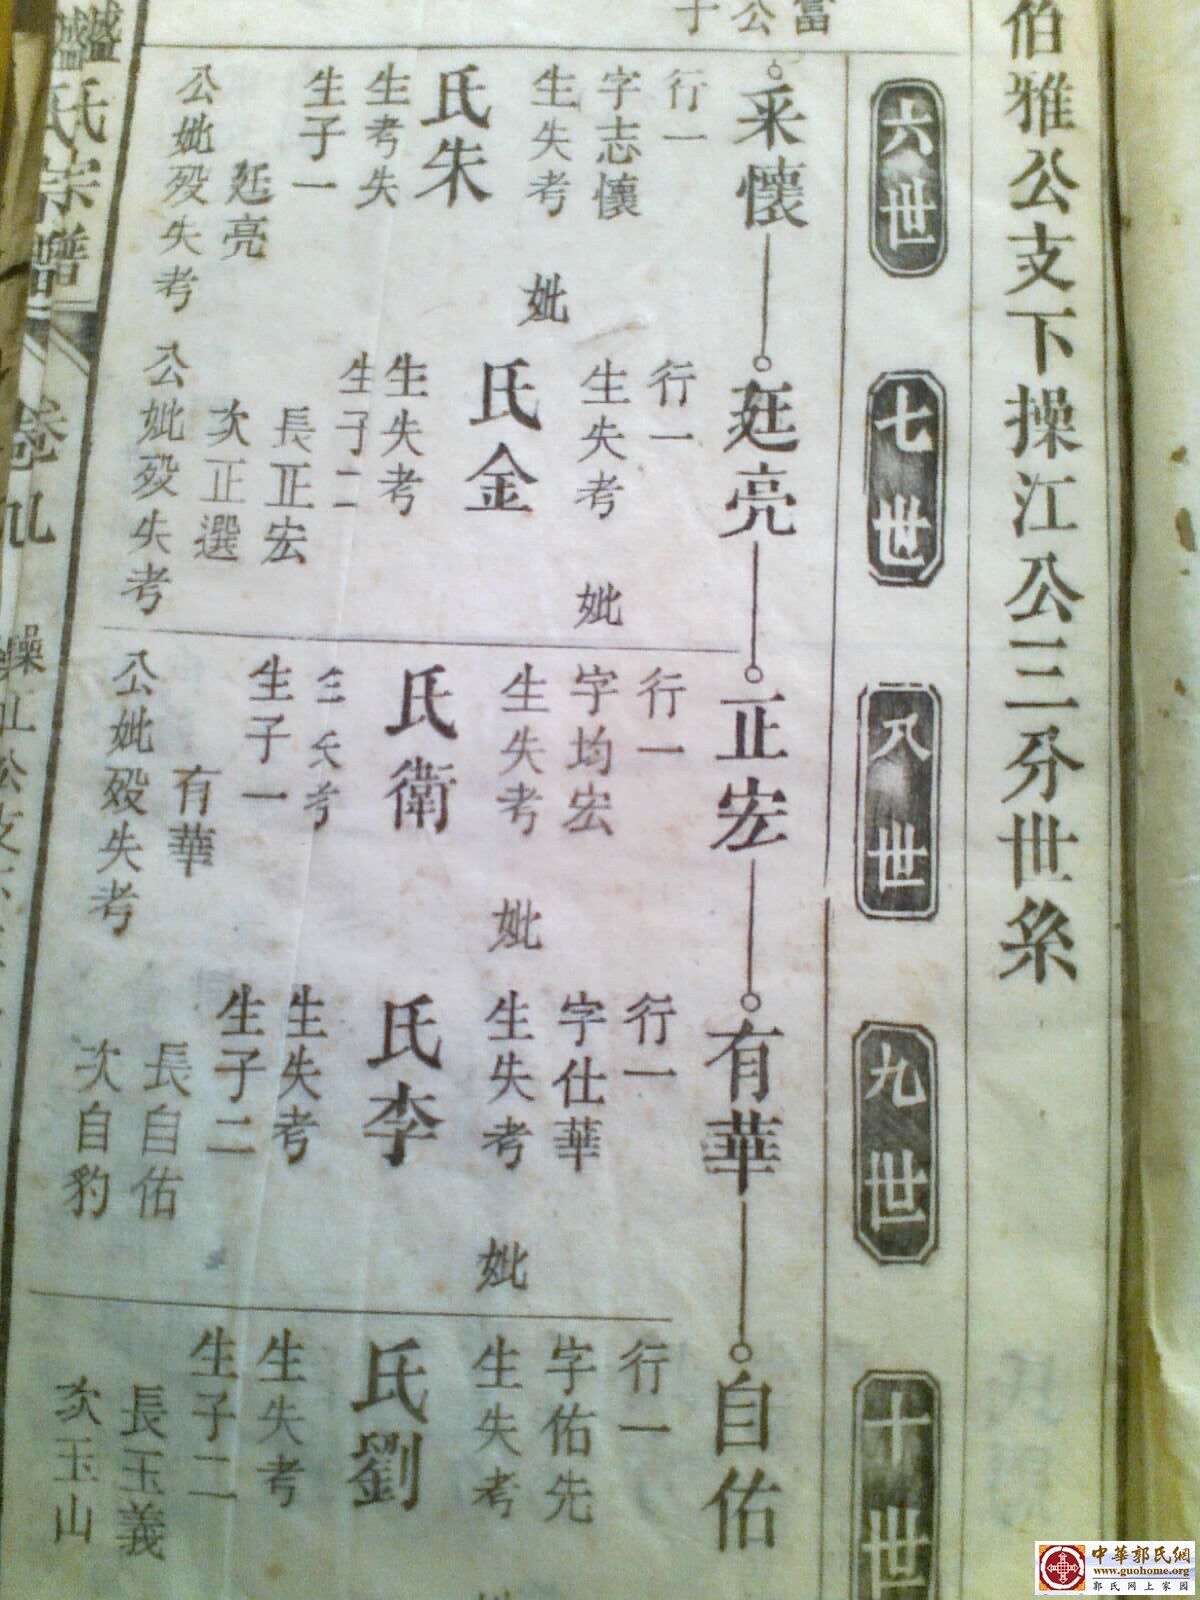 伯雅公支下操江公三分世系
六世
七世
八世
九世
十世
富
公
子
采懷
行一
字志懷
生失考
妣
氏朱
生考失
生子一
廷亮
公妣歿失考
廷亮
行一
生失考
妣
氏金
生失考
生子二
長正宏
次正選
公妣歿失考
正宏
行一
字均宏
生失考
妣
氏衛
生失考
生子一
有華
公妣歿失考
有華
行一
字仕華
生失考
妣
氏李
生失考
生子二
長自佑
次自豹
自佑
行一
字佑先
生失考
氏劉
生失考
生子二
長玉義
次玉山
氏宗譜
卷九
操江公支
中華郭氏網
www.guohome.org
郭氏网上家园